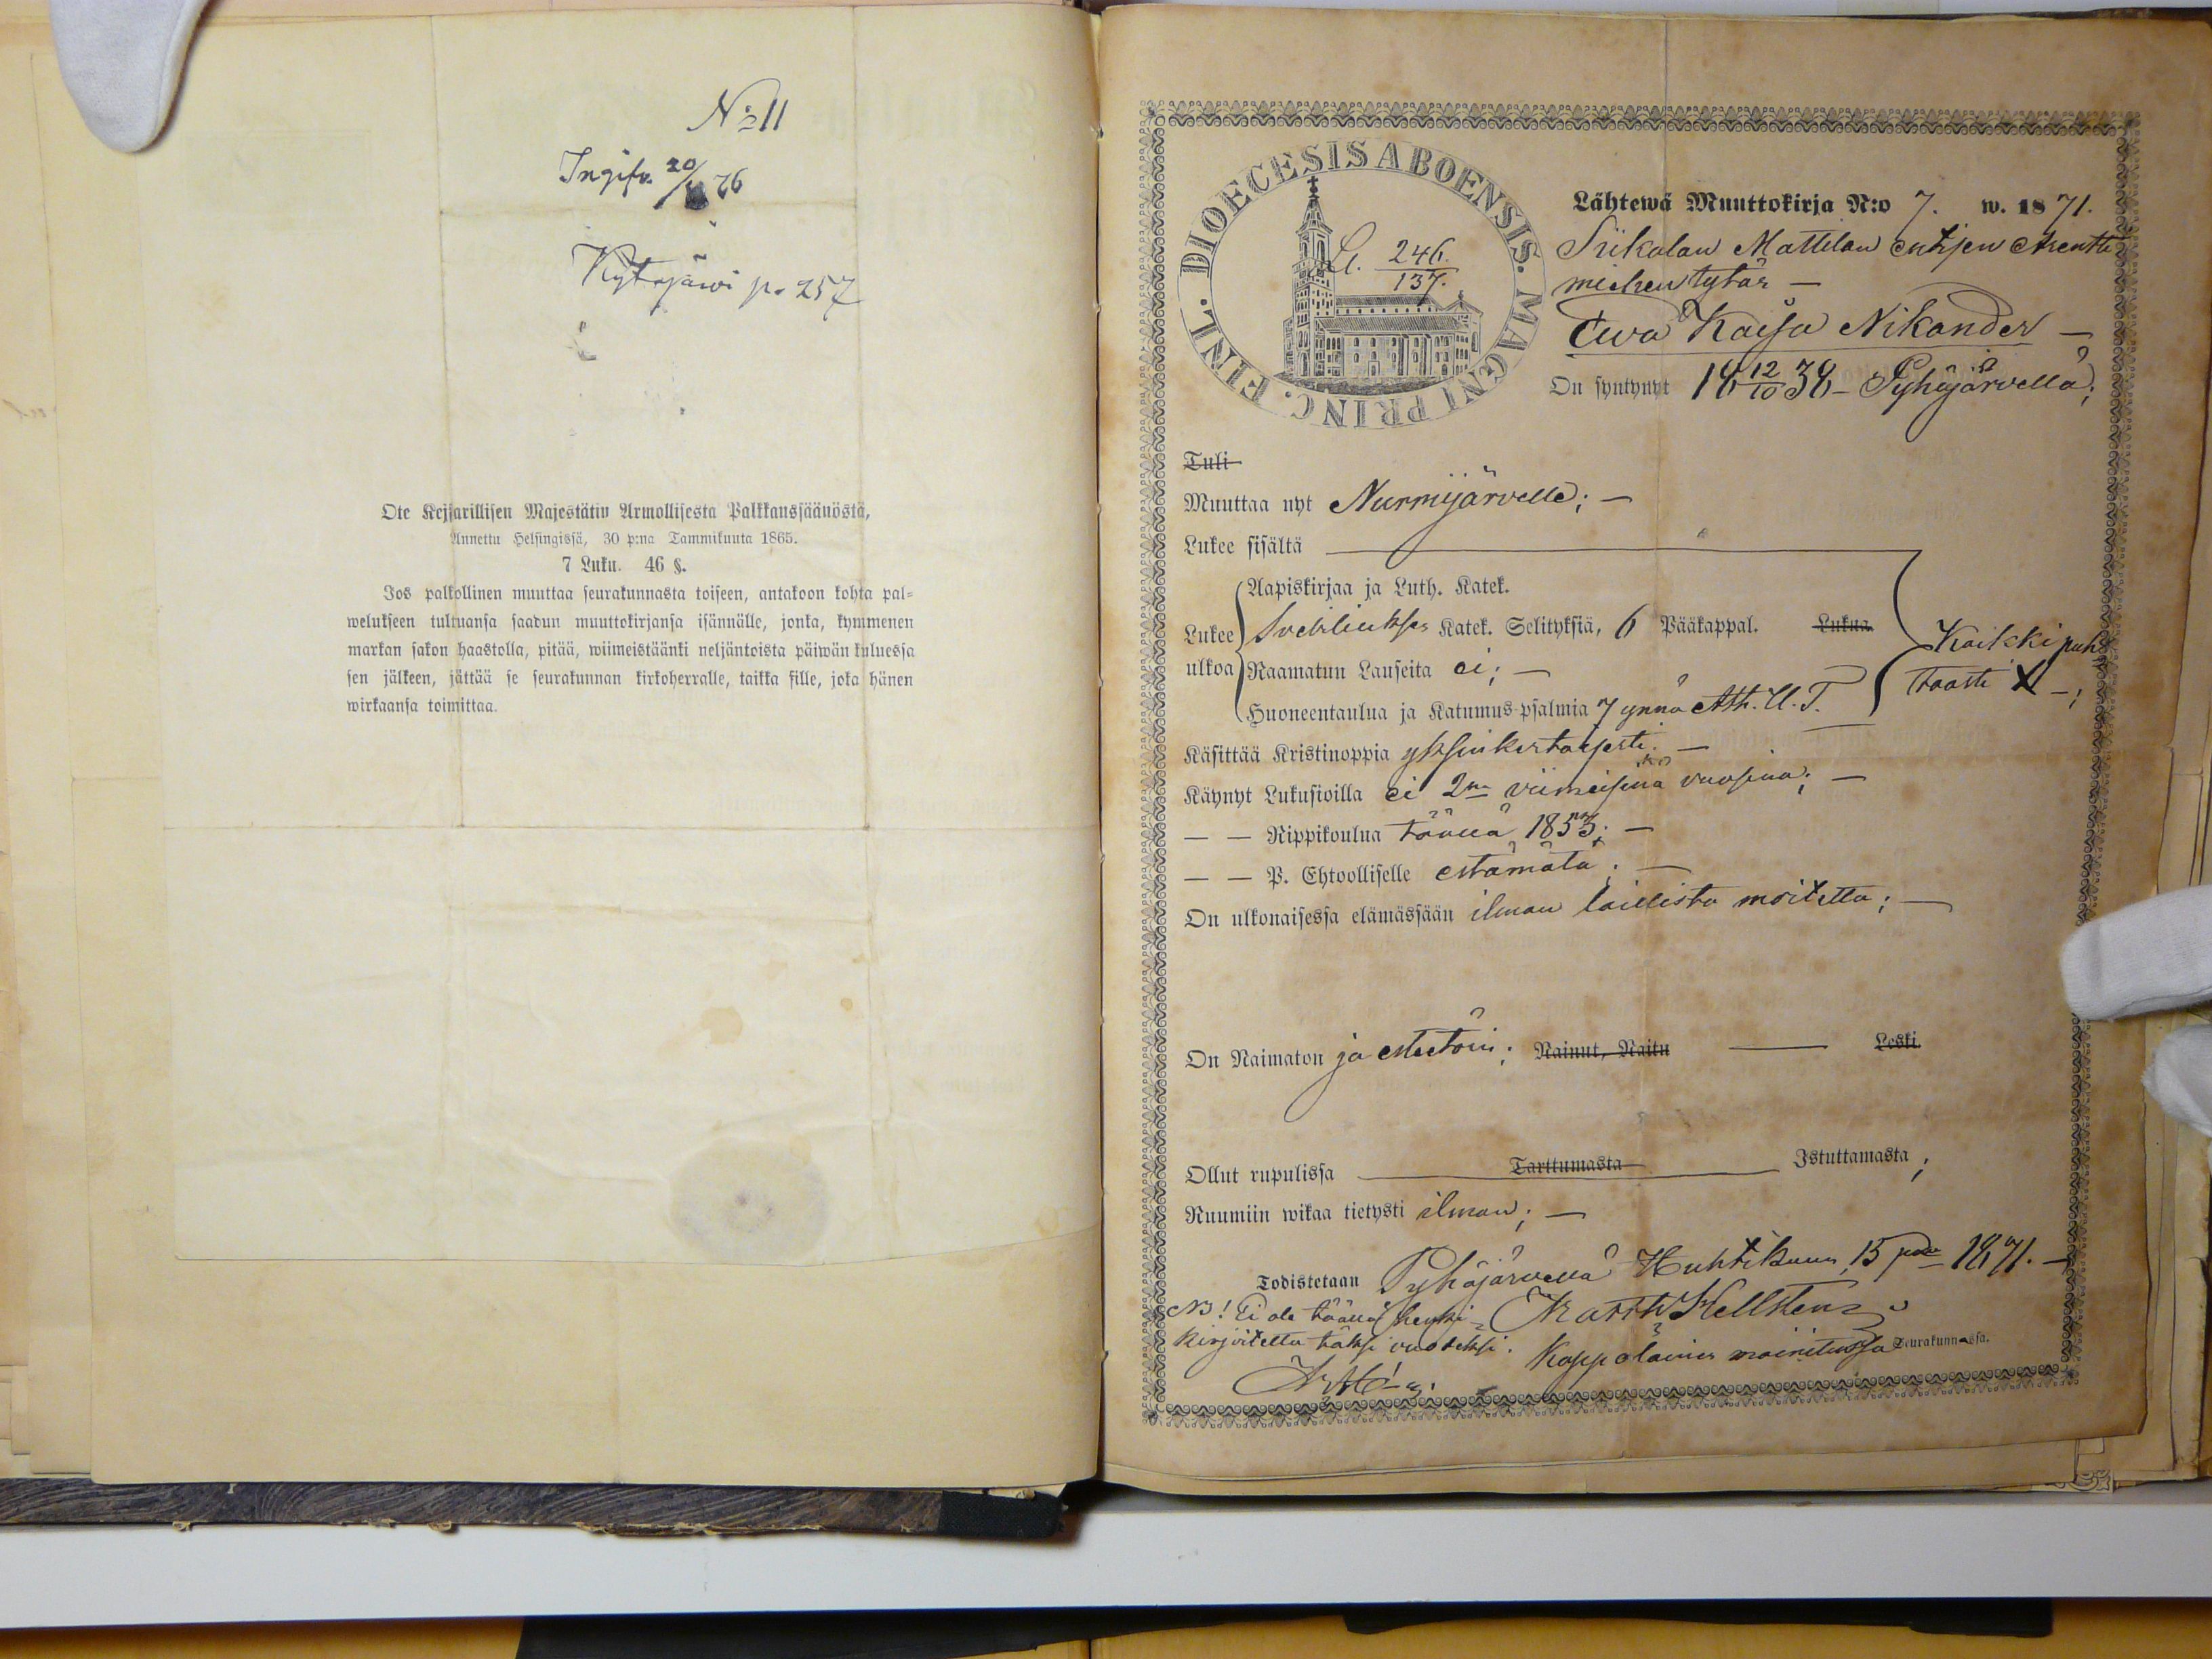 N:o 11
Ingifv. 20/ 76
Kytäjärvi p. 257
Ote Kejsarillisen Majestätin Armollisesta Palkkaussäänöstä,
Annettu Helsingissä, 30 p:na Tammikuuta 1865.
7 Luku. 46 §.
Jos palkollinen muuttaa seurakunnasta toiseen, antakoon kohta pal-
welukseen tultuansa saadun muuttokirjansa isännälle, jonka, kymmenen
markan sakon haastolla, pitää, wiimeistäänki neljäntoista päiwän kuluessa
sen jälkeen, jättää se seurakunnan kirkoherralle, taikka sille, joka hänen
wirkaansa toimittaa.
DIOECESIS ABOENSIS. MAGNI PRINC. FINL.
246.
137.
Lähtewä Muuttokirja N:o 7. w. 1871.
Siikalan Mattilan entisen Arenti
miehen tytär —
Ewa Kaisa Nikander —
On syntynyt 18 12/10 38 – Pyhäjärvellä;
Tuli
Muuttaa nyt Nurmijärvelle; —
Lukee sisältä
Aapiskirjaa ja Luth. Katek.
Lukee ulkoa Svebiliuksen Katek. Selityksiä, 6 Pääkappal. Lukua.
Raamatun Lauseita ei; —
Huoneentaulua ja Katumus-psalmia 7 ynnä Ath. U. T.
Kaikki puh
taasti X —;
Käsittää Kristinoppia yksinkertaisesti. —
Käynyt Lukusioilla ei 2na viimeisinä vuosina; —
— — Rippikoulua täällä 1853; —
— — P. Ehtoolliselle estämätä; —
On ulkonaisessa elämässään ilman laillista moitetta; —
On Naimaton ja esteetöin; Nainut, Naitu — Leski.
Ollut rupulissa Tarttumasta Istuttamasta;
Ruumiin wikaa tietysti ilman; —
Todistetaan Pyhäjärvellä Huhtikuun 15 pnä 1871. —
NB! Ei ole täällä henki- Hellsten
kirjoitettu täksi vuodeksi. Kappalainen mainitussa Seurakunnassa.